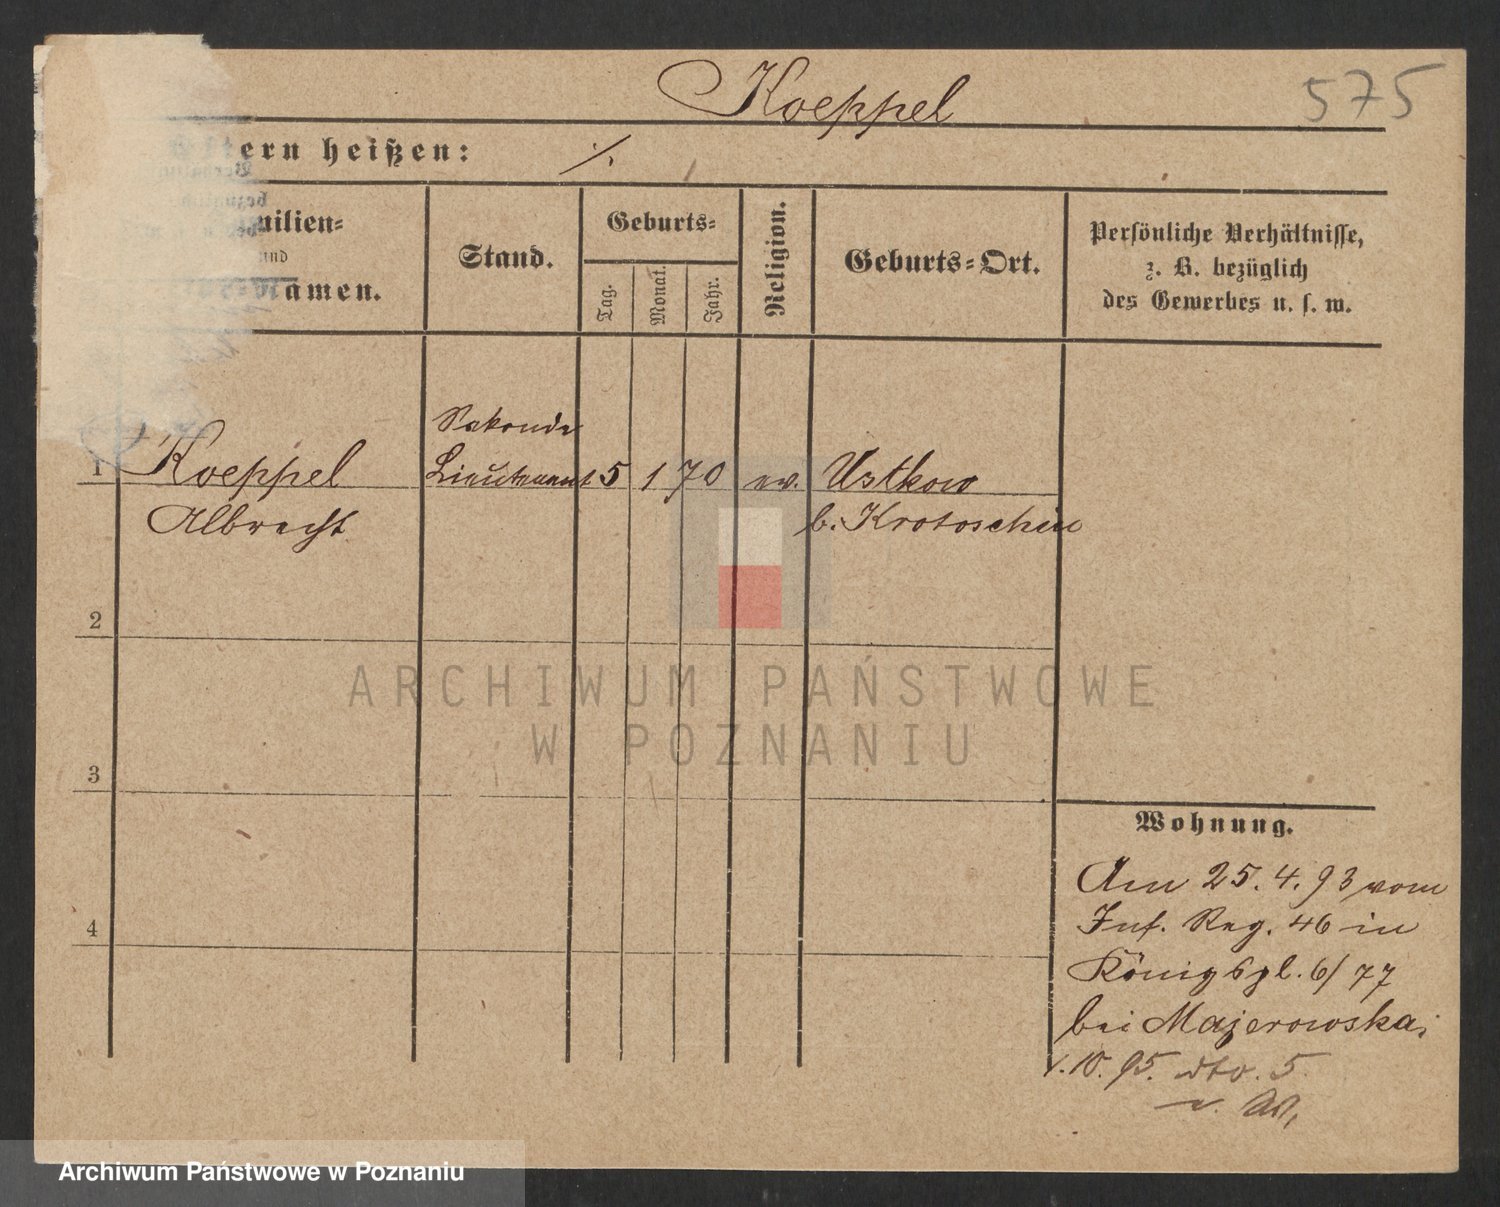 Koeppel
575
ern heißen: ·/.
milien=
und
namen.
Stand.
Geburts=
Tag.
Monat.
Jahr.
Religion.
Geburts=Ort.
Persönliche Verhältnisse,
z. B. bezüglich
des Gewerbes u. s. w.
1 Koeppel
Albrecht
Sekonde
Lieutenant
5 1 70 ev. Ustkow
b. Krotoschin
2
3
4
Wohnung.
Am 25. 4. 93 vom
Inf. Reg. 46 in
Königspl. 6/77
bei Majerowska;
1. 10. 95. dto. 5.
ARCHIWUM PAŃSTWOWE
W POZNANIU
Archiwum Państwowe w Poznaniu